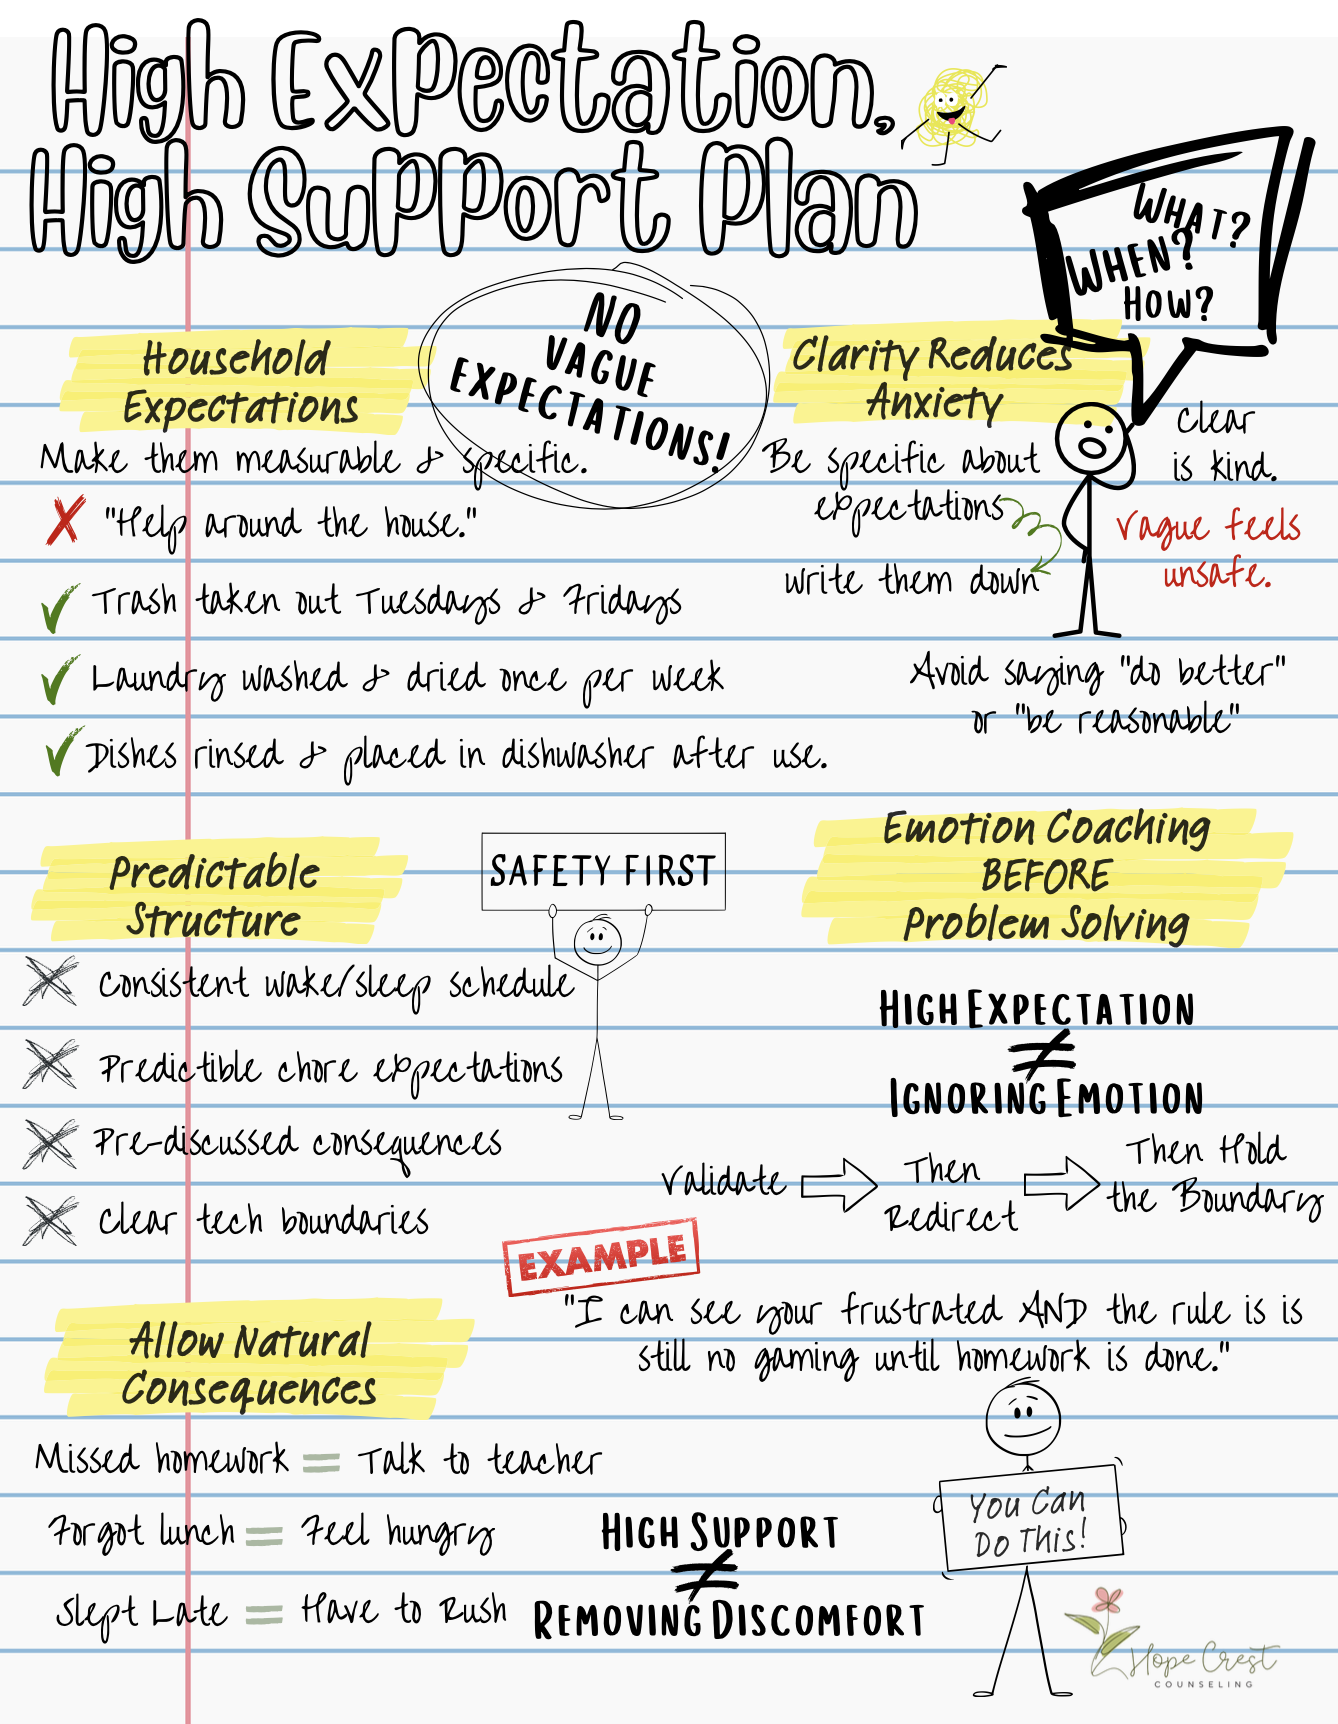 High Expectation,
High Support Plan
WHAT?
WHEN?
HOW?
NO
VAGUE
EXPECTATIONS!
Household
Expectations
Make them measurable & specific.
"Help around the house."
Trash taken out Tuesdays & Fridays
Laundry washed & dried once per week
Dishes rinsed & placed in dishwasher after use.
Clarity Reduces
Anxiety
Be specific about
expectations
write them down
Clear
is kind.
Vague feels
unsafe.
Avoid saying "do better"
or "be reasonable"
Predictable
Structure
Consistent wake/sleep schedule
Predictible chore expectations
Pre-discussed consequences
Clear tech boundaries
SAFETY FIRST
Emotion Coaching
BEFORE
Problem Solving
HIGH EXPECTATION
≠
IGNORING EMOTION
Validate
Then
Redirect
Then Hold
the Boundary
EXAMPLE
"I can see your frustrated AND the rule is is
still no gaming until homework is done."
Allow Natural
Consequences
Missed homework = Talk to teacher
Forgot lunch = Feel hungry
Slept Late = Have to Rush
HIGH SUPPORT
≠
REMOVING DISCOMFORT
You Can
Do This!
Hope Crest
COUNSELING